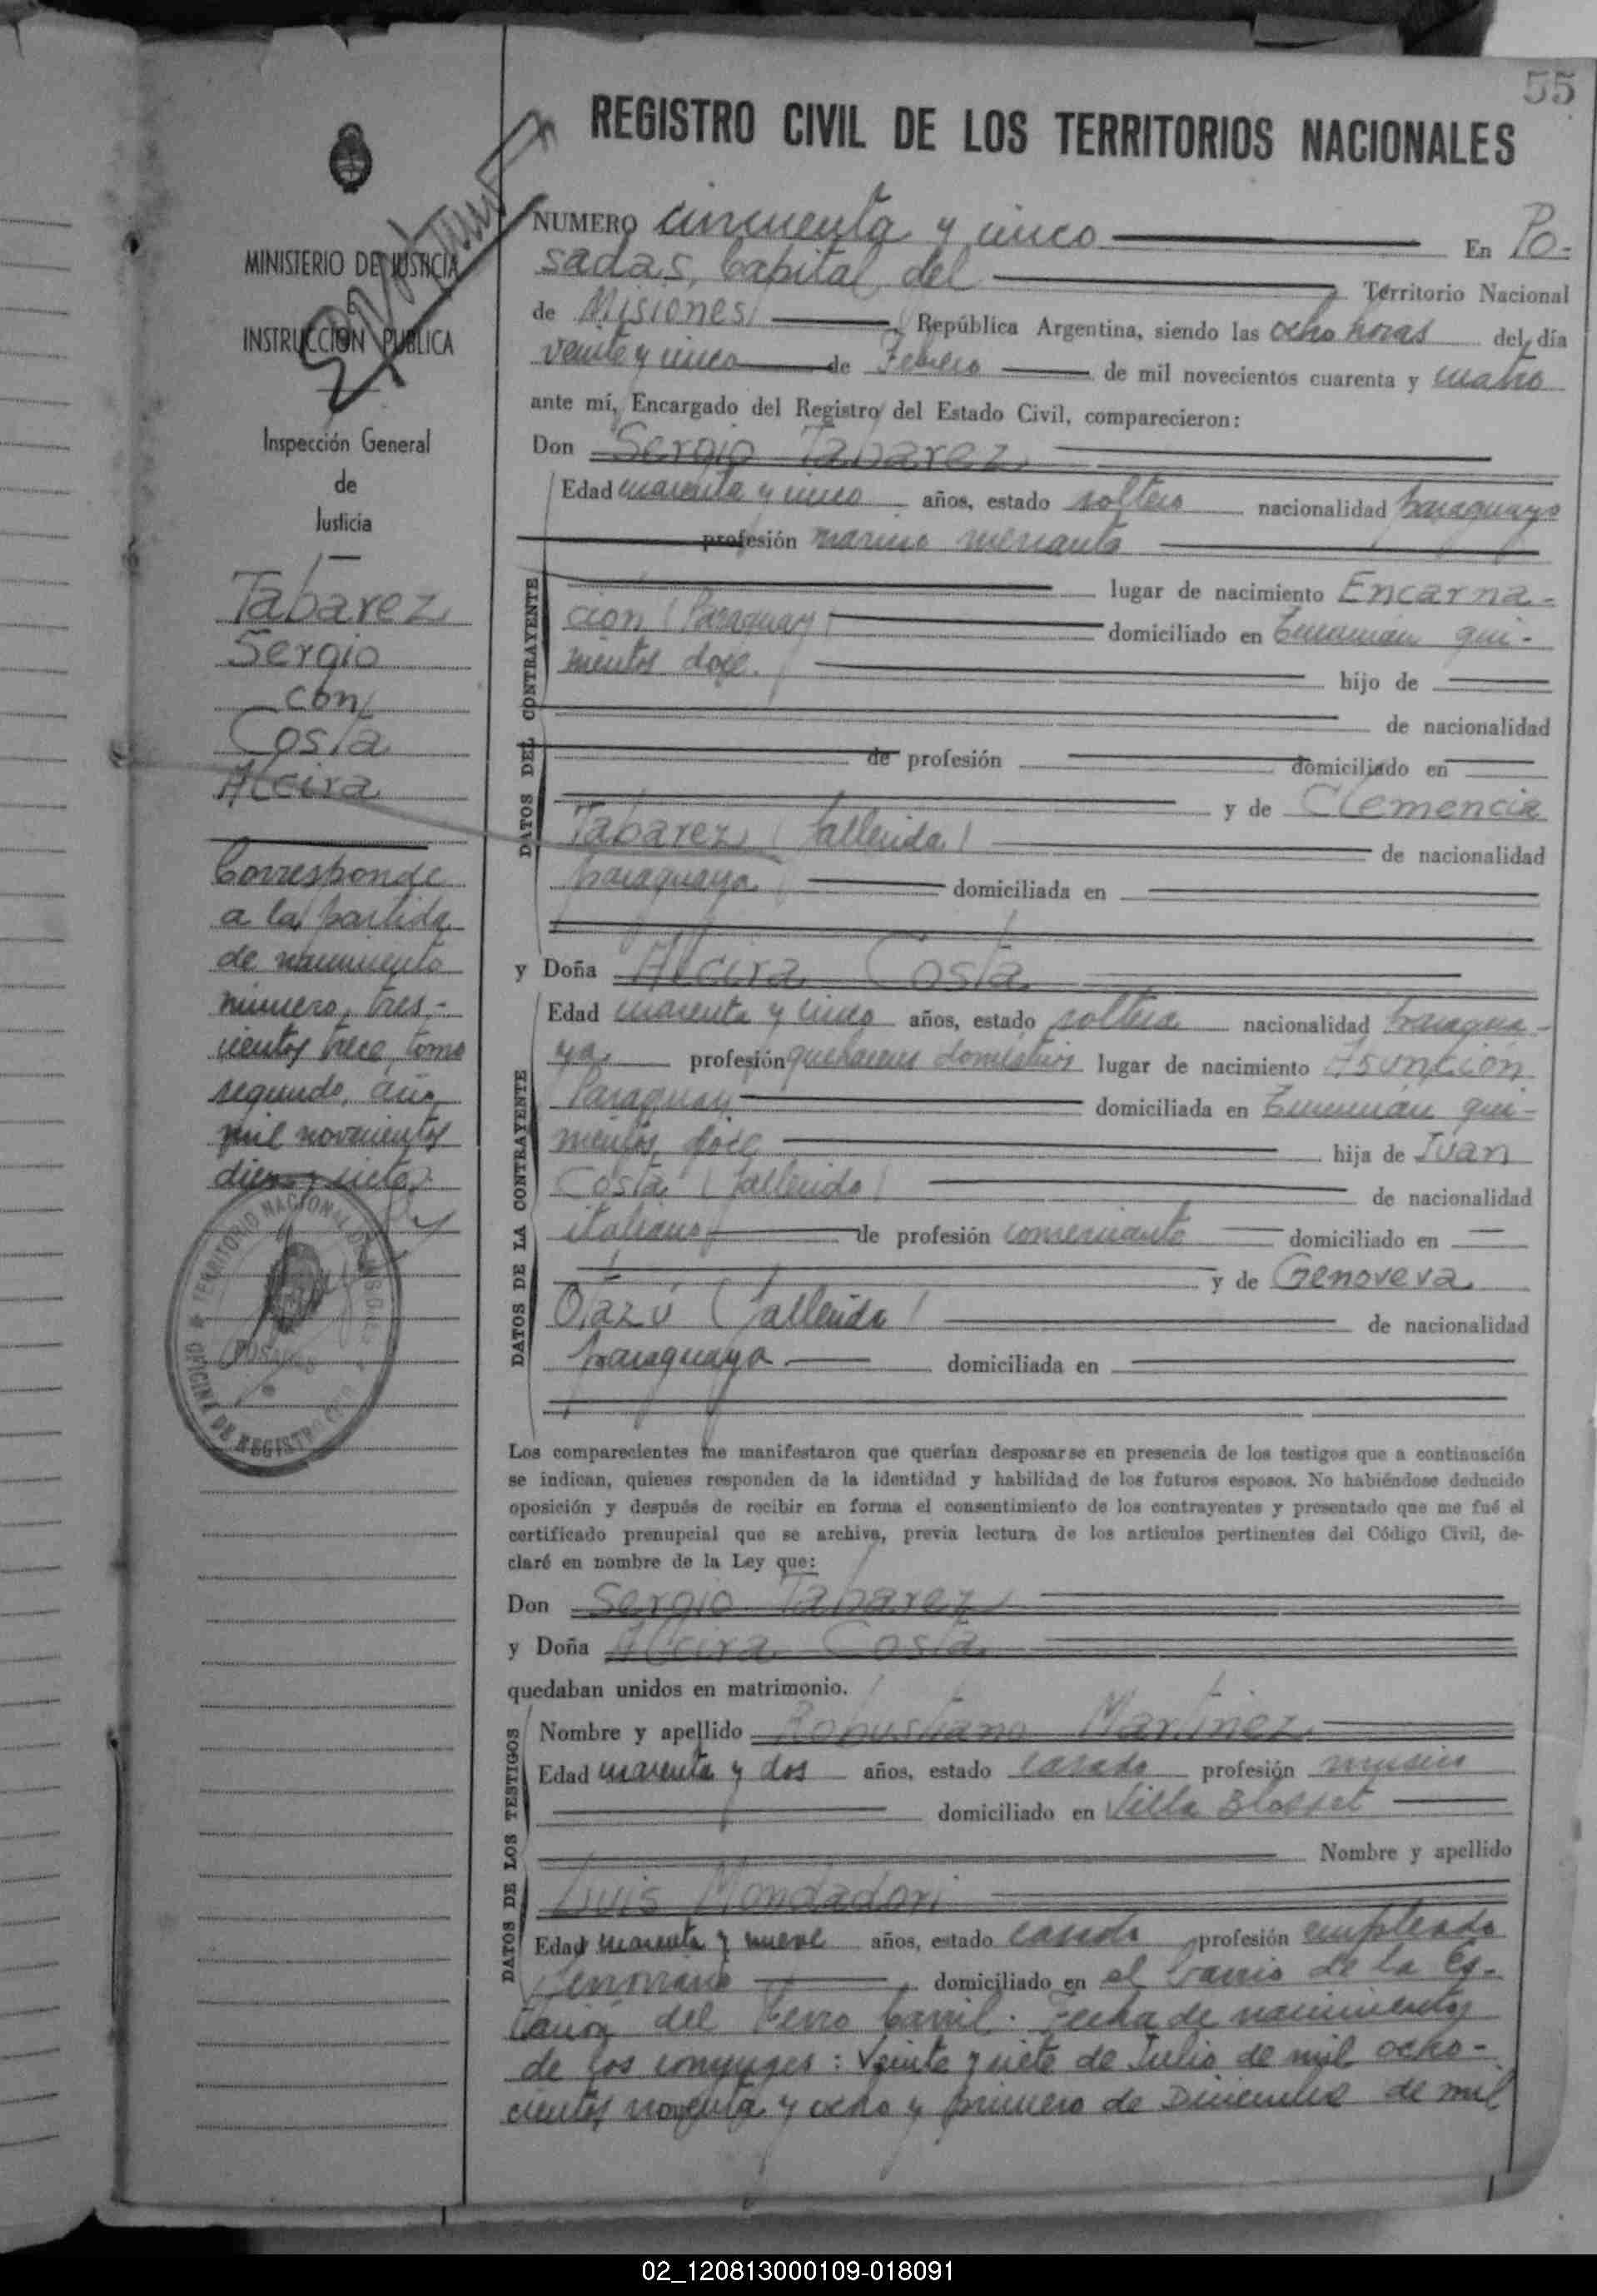 55
REGISTRO CIVIL DE LOS TERRITORIOS NACIONALES
MINISTERIO DE JUSTICIA
E
INSTRUCCIÓN PUBLICA
Inspección General
de
Justicia
Tabarez
Sergio
con
Costa
Alcira
Corresponde
a la partida
de nacimiento
número, tres-
cientos trece, tomo
segundo, año
mil novecientos
diez y siete.
TERRITORIO NACIONAL DE MISIONES
POSADAS
OFICINA DE REGISTRO CIVIL
NUMERO cincuenta y cinco En Po-
sadas, Capital del Territorio Nacional
de Misiones, República Argentina, siendo las ocho horas del día
veinte y cinco de Febrero de mil novecientos cuarenta y cuatro
ante mí, Encargado del Registro del Estado Civil, comparecieron:
Don Sergio Tabarez
DATOS DEL CONTRAYENTE
Edad cuarenta y cinco años, estado soltero nacionalidad paraguayo
profesión marino mercante
lugar de nacimiento Encarna-
ción (Paraguay) domiciliado en Tucumán qui-
nientos doce. hijo de
de nacionalidad
de profesión domiciliado en
y de Clemencia
Tabarez (fallecida) de nacionalidad
paraguaya domiciliada en
y Doña Alcira Costa
DATOS DE LA CONTRAYENTE
Edad cuarenta y cinco años, estado soltera nacionalidad paragua-
ya profesión quehaceres domésticos lugar de nacimiento Asunción
Paraguay domiciliada en Tucumán qui-
nientos doce hija de Juan
Costa (fallecido) de nacionalidad
italiano de profesión comerciante domiciliado en
y de Genoveva
Olazú (fallecida) de nacionalidad
paraguaya domiciliada en
Los comparecientes me manifestaron que querían desposarse en presencia de los testigos que a continuación
se indican, quienes responden de la identidad y habilidad de los futuros esposos. No habiéndose deducido
oposición y después de recibir en forma el consentimiento de los contrayentes y presentado que me fué el
certificado prenupcial que se archiva, previa lectura de los artículos pertinentes del Código Civil, de-
claré en nombre de la Ley que:
Don Sergio Tabarez
y Doña Alcira Costa
quedaban unidos en matrimonio.
DATOS DE LOS TESTIGOS
Nombre y apellido Robustiano Martinez
Edad cuarenta y dos años, estado casado profesión músico
domiciliado en Villa Blosset
Nombre y apellido
Luis Mondadori
Edad cuarenta y nueve años, estado casado profesión empleado
ferroviario domiciliado en el barrio de la Es-
tación del Ferro Carril. Fecha de nacimiento
de los conyuges: Veinte y siete de Julio de mil ocho-
cientos noventa y ocho y primero de Diciembre de mil
02_120813000109-018091